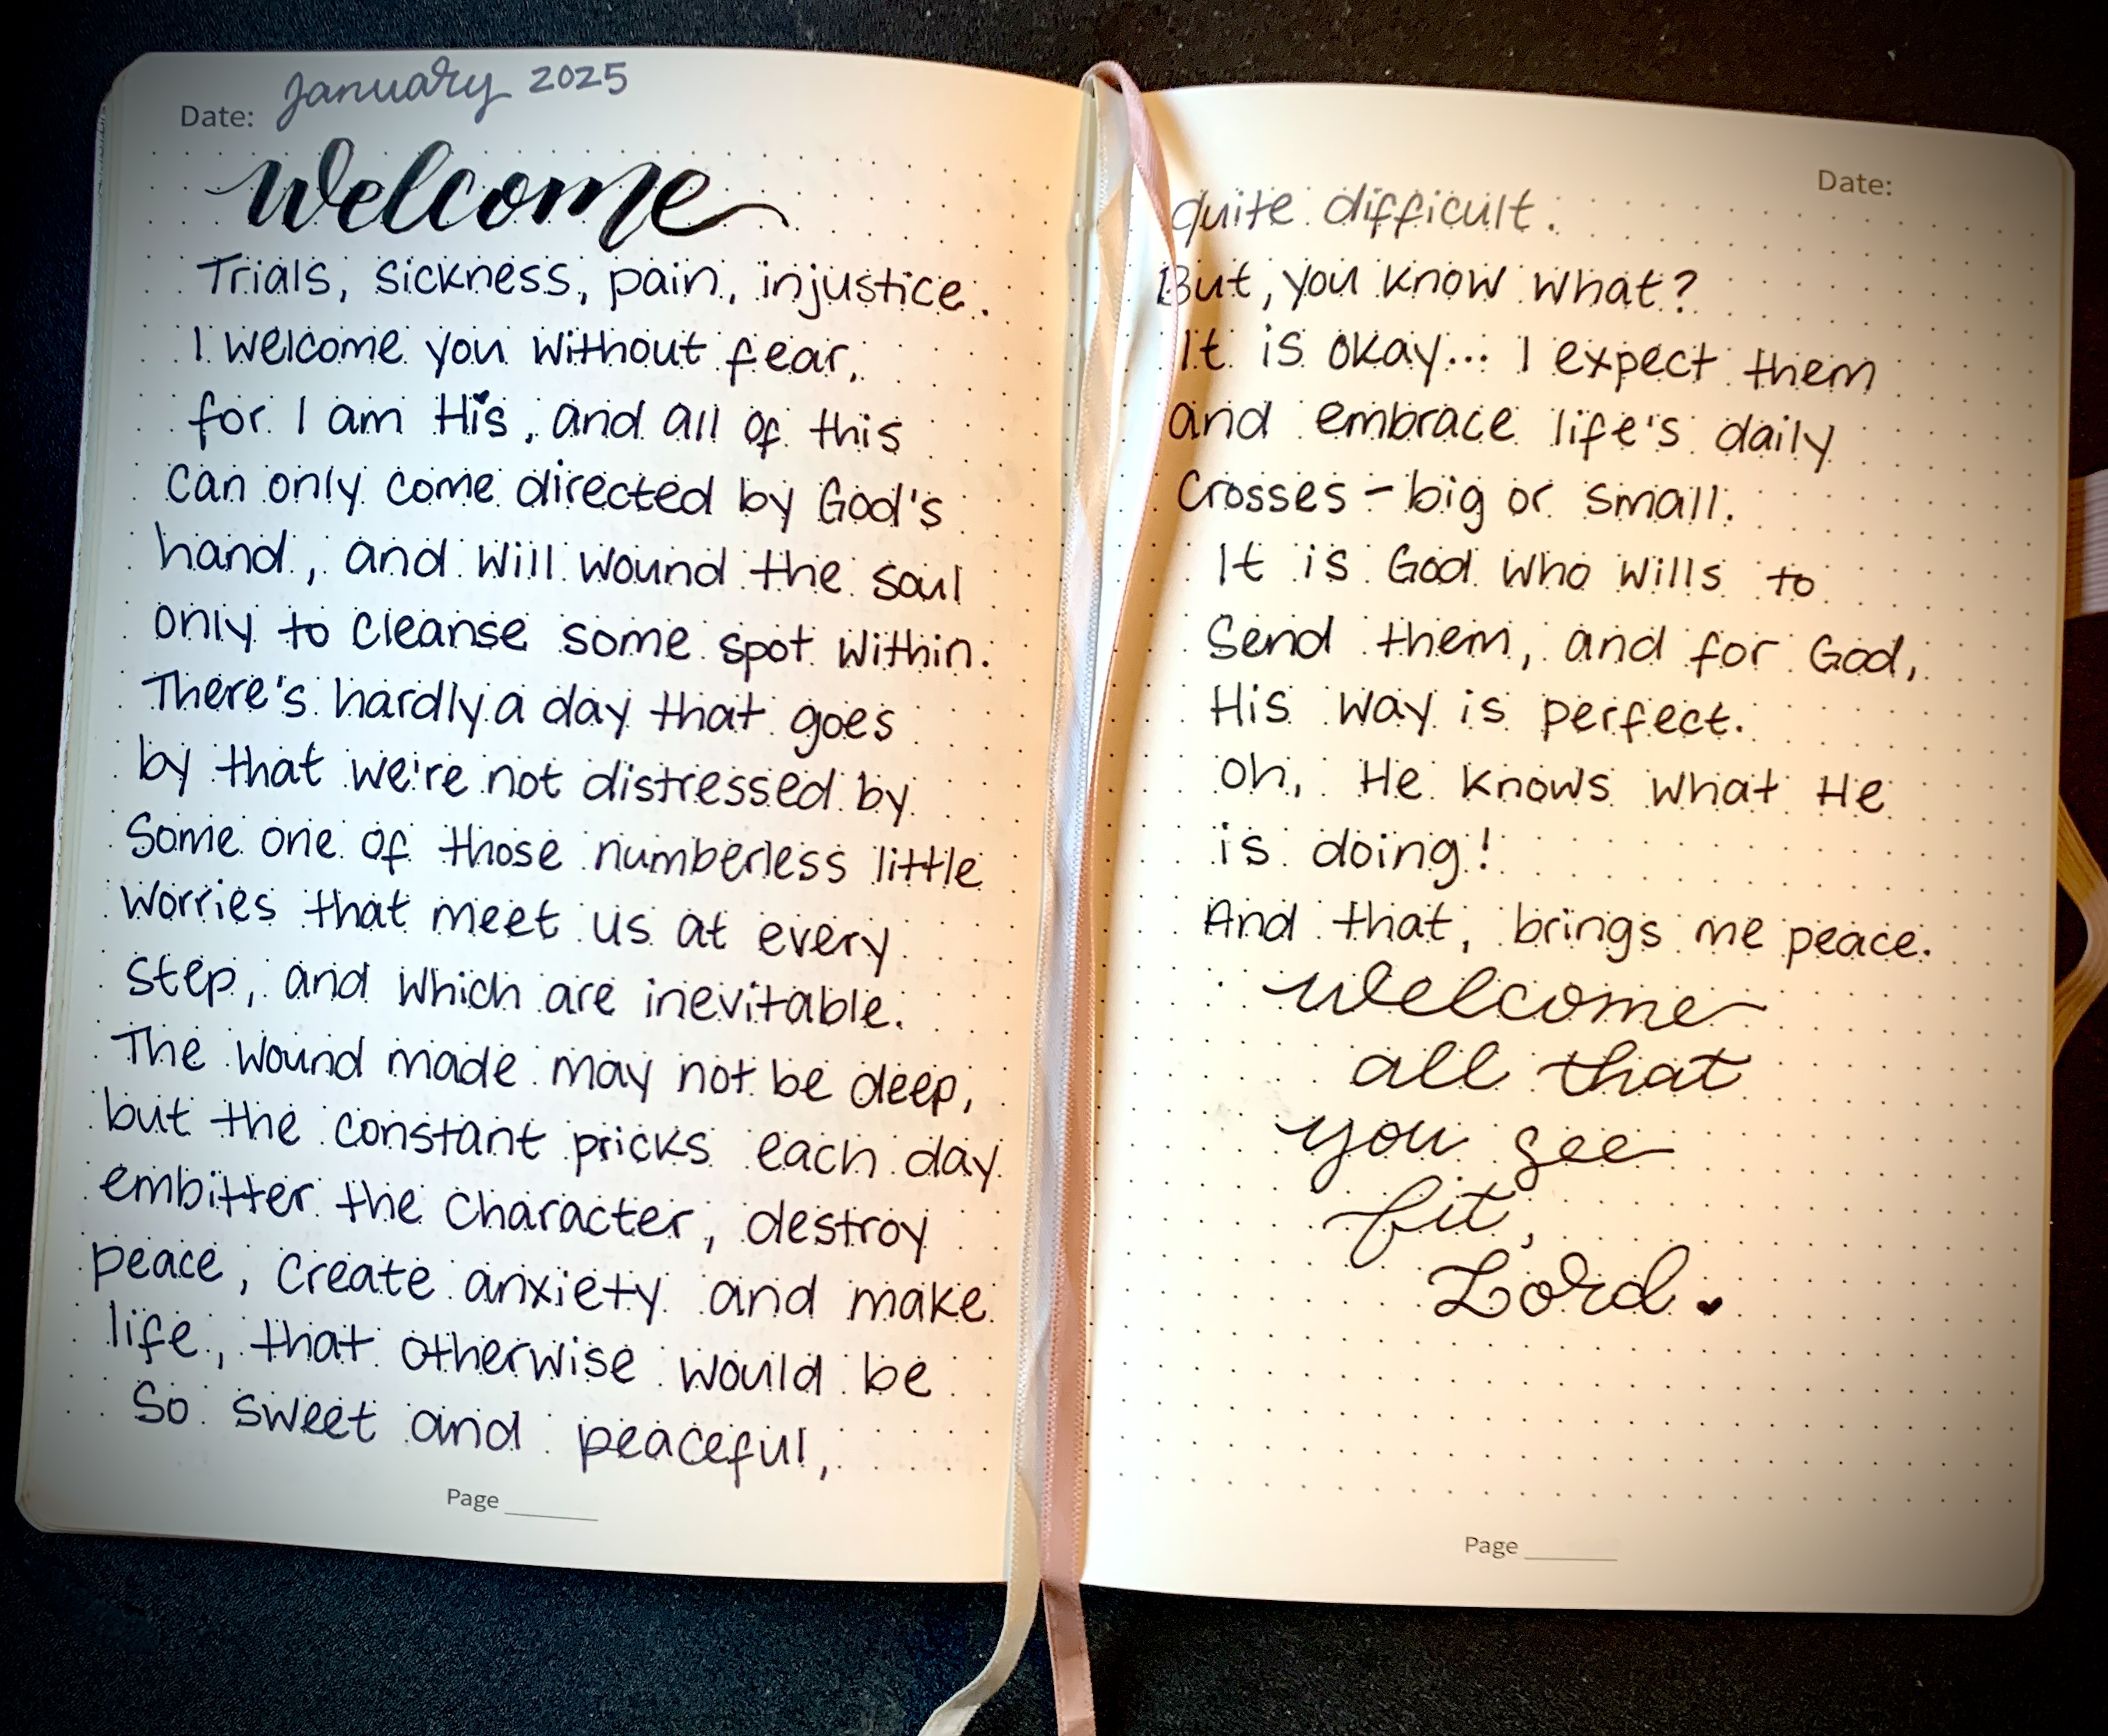 Date: January 2025
Welcome
Trials, sickness, pain, injustice.
I welcome you without fear,
for I am His, and all of this
can only come directed by God's
hand, and will wound the soul
only to cleanse some spot within.
There's hardly a day that goes
by that we're not distressed by
some one of those numberless little
worries that meet us at every
step, and which are inevitable.
The wound made may not be deep,
but the constant pricks each day
embitter the character, destroy
peace, create anxiety and make
life, that otherwise would be
so sweet and peaceful,
Page
Date:
quite difficult.
But, you know what?
It is okay... I expect them
and embrace life's daily
crosses - big or small.
It is God who wills to
send them, and for God,
His way is perfect.
Oh, He knows what He
is doing!
And that, brings me peace.
Welcome
all that
you see
fit,
Lord.
Page